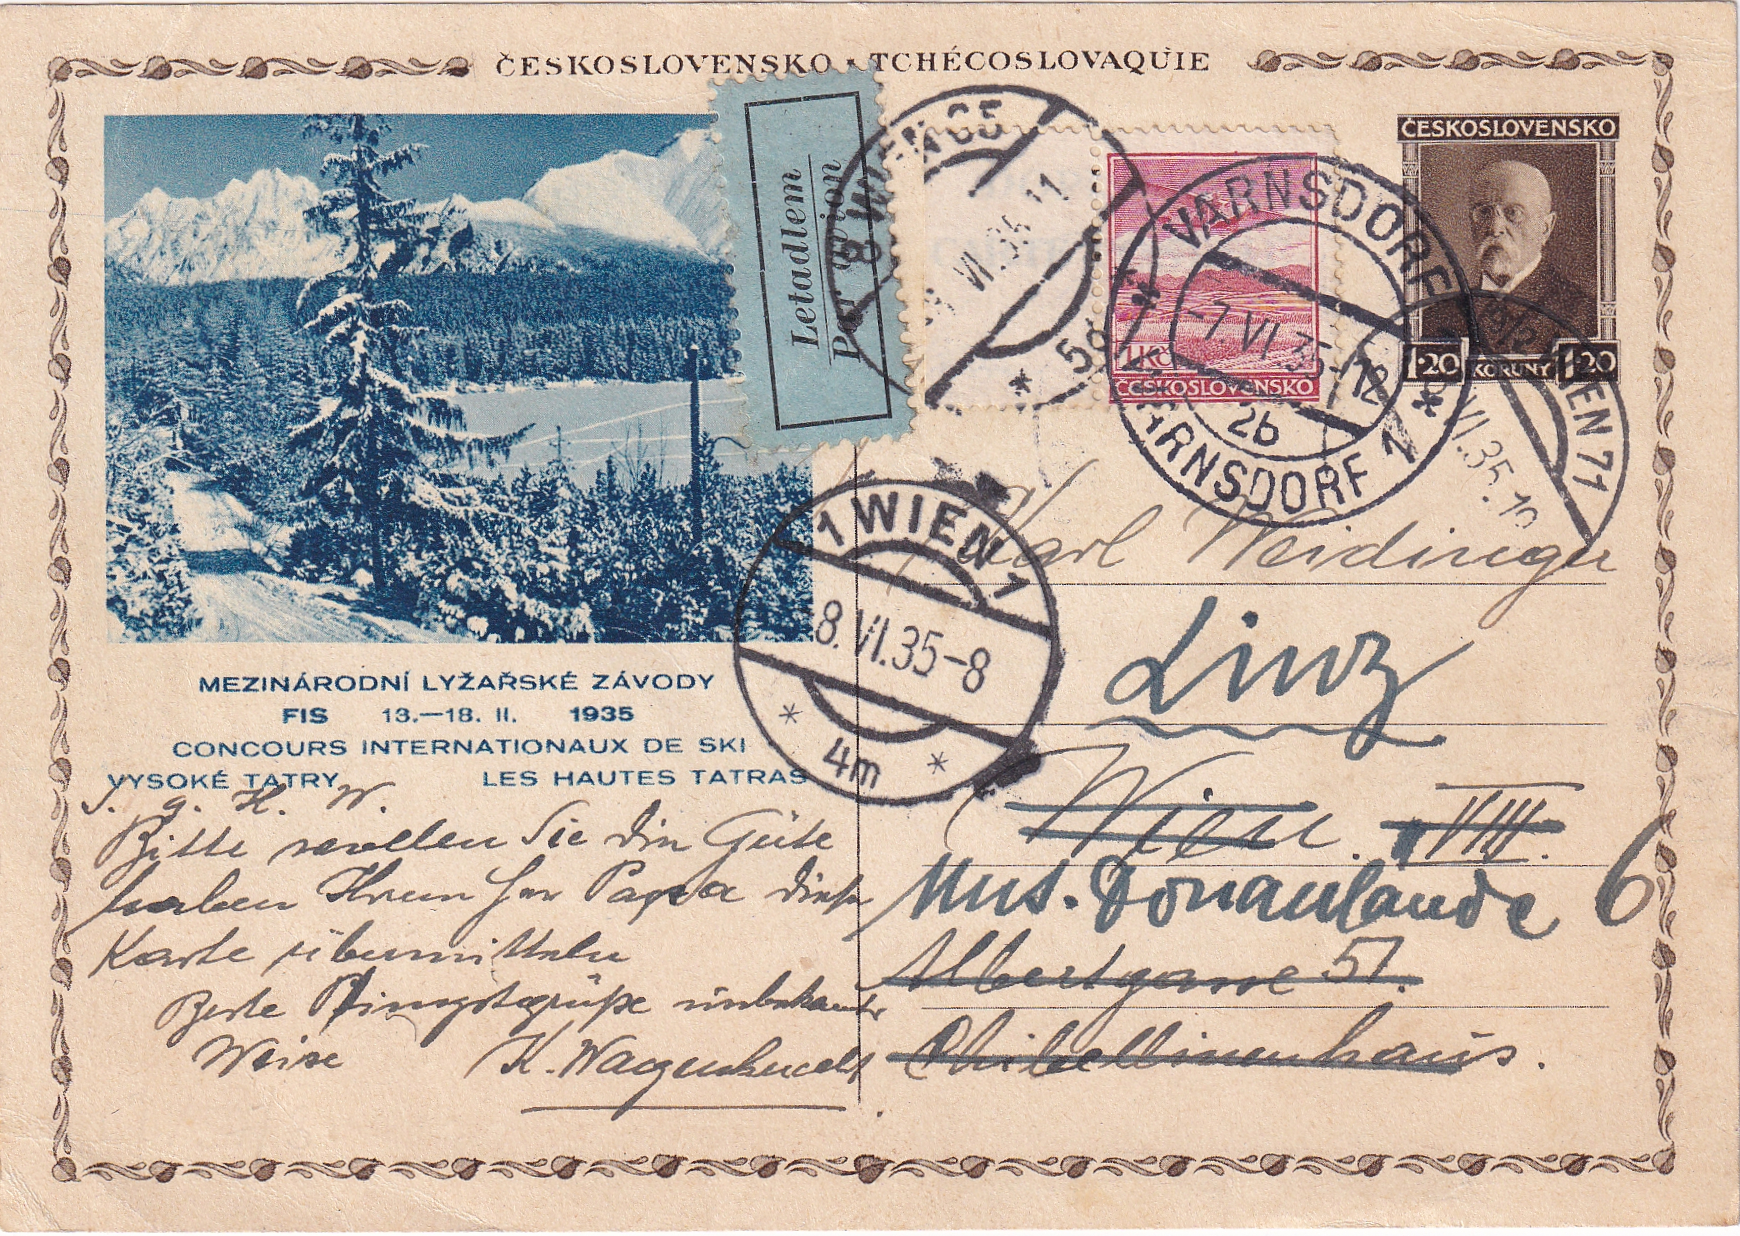 ČESKOSLOVENSKO • TCHÉCOSLOVAQUIE
Letadlem
Par avion
8 WIEN 65
VI.35 11
5d
1 Kč
ČESKOSLOVENSKO
VARNSDORF 1
-7.VI.35-12
2b
WARNSDORF 1
ČESKOSLOVENSKO
1·20 KORUNY 1·20
WIEN 71
VI.35.10
1 WIEN 1
-8.VI.35-8
4m
MEZINÁRODNÍ LYŽAŘSKÉ ZÁVODY
FIS 13.—18. II. 1935
CONCOURS INTERNATIONAUX DE SKI
VYSOKÉ TATRY LES HAUTES TATRAS
S. g. H. W.
Bitte wollen Sie die Güte
haben Ihrem Papa diese
Karte übermitteln
Beste Pfingstgrüße unbekannter
Weise K.
Karl Weidinger
Linz
Wien. VIII.
Unt. Donaulände 6
Albertgasse 51.